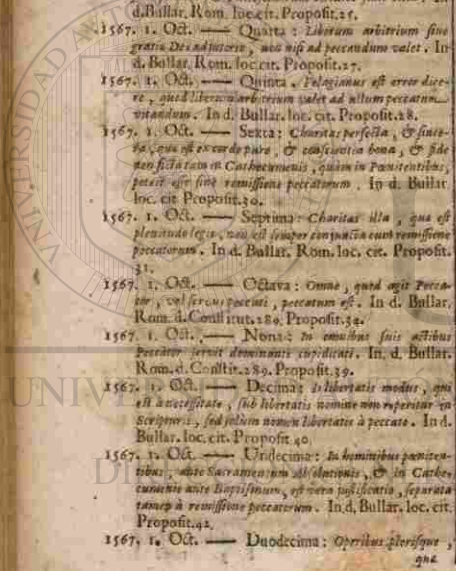 d. Bullar. Rom. loc. cit. Proposit. 25.
1567. 1. Oct. —— Quarta : Liberum arbitrium sine
gratia Dei adjutorio, non nisi ad peccandum valet. In
d. Bullar. Rom. loc. cit. Proposit. 27.
1567. 1. Oct. —— Quinta. Pelagianus est error dice-
re, quod liberum arbitrium valet ad ullum peccatum
vitandum. In d. Bullar. loc. cit. Proposit. 28.
1567. 1. Oct. —— Sexta: Charitas perfecta, & since-
ra, quæ est ex corde puro, & conscientia bona, & fide
non ficta tam in Cathecumenis, quàm in Pœnitentibus,
potest esse sine remissione peccatorum. In d. Bullar.
loc. cit. Proposit. 30.
1567. 1. Oct. —— Septima: Charitas illa, quæ est
plenitudo legis, non est semper conjuncta cum remissione
peccatorum. In d. Bullar. Rom. loc. cit. Proposit.
31.
1567. 1. Oct. —— Octava: Omne, quod agit Pecca-
tor, vel servus peccati, peccatum est. In d. Bullar.
Rom. d. Constitut. 289. Proposit. 34.
1567. 1. Oct. —— Nona: In omnibus suis actibus
Peccator servit dominanti cupiditati. In. d. Bullar.
Rom. d. Constit. 289. Proposit. 39.
1567. 1. Oct. —— Decima: Is libertatis modus, qui
est à necessitate, sub libertatis nomine non reperitur in
Scripturis, sed solum nomen libertatis à peccato. In d.
Bullar. loc. cit. Proposit. 40.
1567. 1. Oct. —— Undecima: In hominibus pœniten-
tibus, ante Sacramentum Absolutionis, & in Cathe-
cumenis ante Baptismum, est vera justificatio, separata
tamen à remissione peccatorum. In d. Bullar. loc. cit.
Proposit. 42.
1567. 1. Oct. —— Duodecima: Operibus plerisque,
quæ